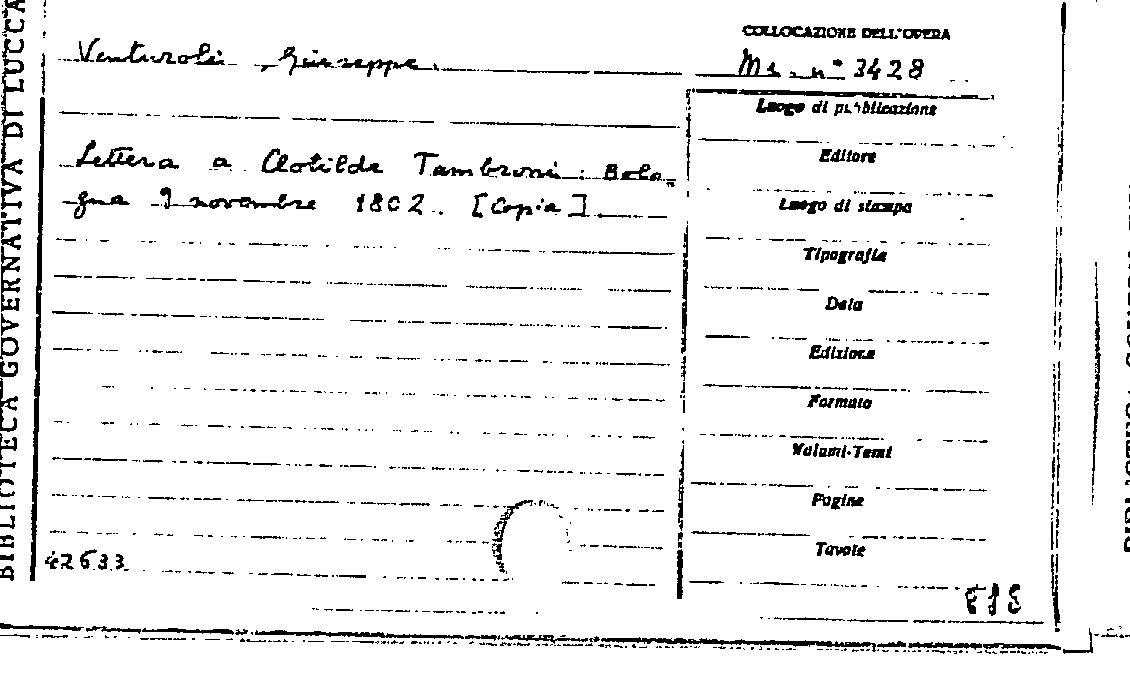 BIBLIOTECA GOVERNATIVA DI LUCCA
Venturoli, Giuseppe.
Lettera a Clotilde Tambroni. Bolo-
gna 9 novembre 1802. [Copia]
42633
COLLOCAZIONE DELL'OPERA
Ms. n° 3428
Luogo di pubblicazione
Editore
Luogo di stampa
Tipografia
Data
Edizione
Formato
Volumi-Tomi
Pagine
Tavole